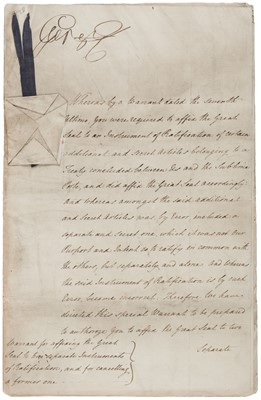 George R
Whereas by a Warrant dated the seventh
Ultimo, You were required to affix the Great
Seal to an Instrument of Ratification of certain
additional and secret Articles belonging to a
Treaty concluded between Us and the Sublime
Porte, and did affix the Great Seal accordingly
and whereas amongst the said additional
and secret Articles was, by Error, included a
separate and secret one, which it was not Our
Purport and Intent to ratify in common with
the others, but separately and alone: And whereas
the said Instrument of Ratification is by such
Error, become incorrect. Therefore We have
directed this special Warrant to be prepared
to authorize You to affix the Great Seal to two
Separate
Warrant for affixing the Great
Seal to two separate Instruments
of Ratification, and for cancelling
a former one.